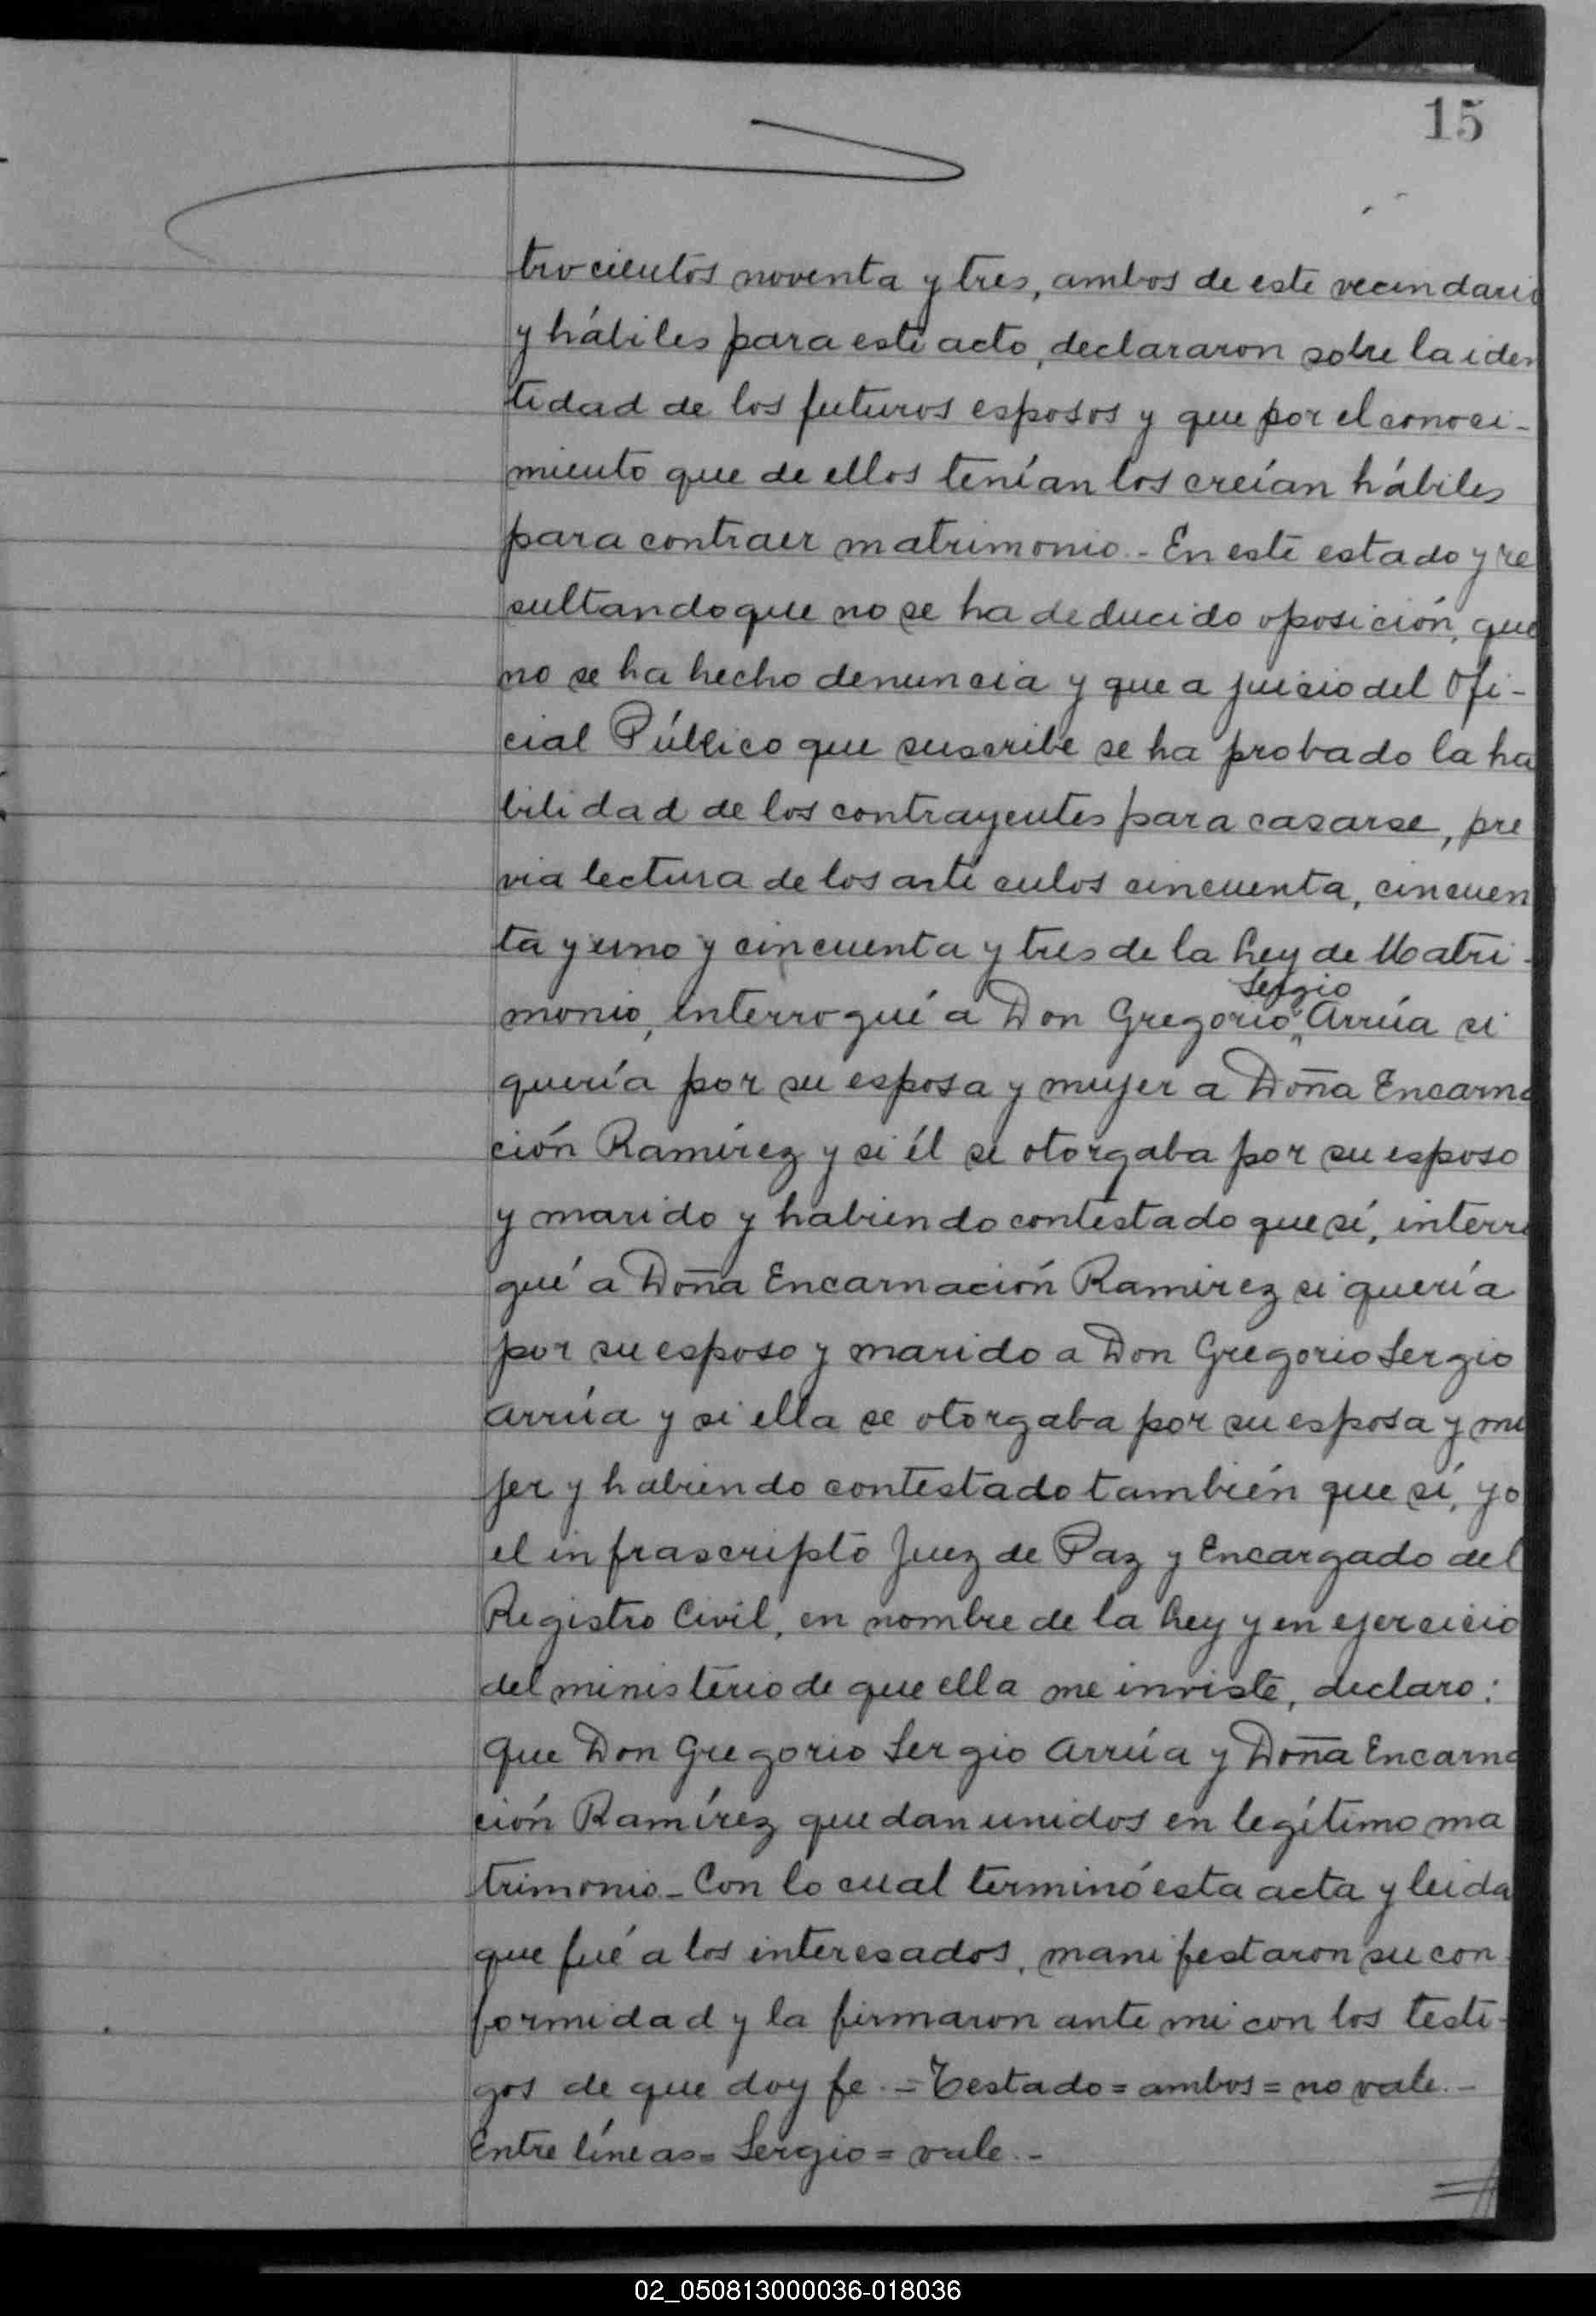 15
trocientos noventa y tres, ambos de este vecindario
y hábiles para este acto, declararon sobre la iden
tidad de los futuros esposos y que por el conoci-
miento que de ellos tenían los creían hábiles
para contraer matrimonio.- En este estado y re
sultando que no se ha deducido oposición, que
no se ha hecho denuncia y que a juicio del Ofi-
cial Público que suscribe se ha probado la ha
bilidad de los contrayentes para casarse, pre
via lectura de los artículos cincuenta, cincuen
ta y uno y cincuenta y tres de la Ley de Matri-
Sergio
monio, interrogué a Don Gregorio Arrúa si
quería por su esposa y mujer a Doña Encarna
ción Ramírez y si él se otorgaba por su esposo
y marido y habiendo contestado que sí, interro
gué a Doña Encarnación Ramirez si quería
por su esposo y marido a Don Gregorio Sergio
Arrúa y si ella se otorgaba por su esposa y mu
jer y habiendo contestado también que sí, yo
el infrascripto Juez de Paz y Encargado del
Registro Civil, en nombre de la Ley y en ejercicio
del ministerio de que ella me inviste, declaro:
Que Don Gregorio Sergio Arrúa y Doña Encarna
ción Ramírez quedan unidos en legítimo ma
trimonio.- Con lo cual terminó esta acta y leida
que fué a los interesados, manifestaron su con-
formidad y la firmaron ante mi con los testi-
gos de que doy fe.-=Testado=ambos=no vale.-
Entre líneas=Sergio=vale.-
02_050813000036-018036